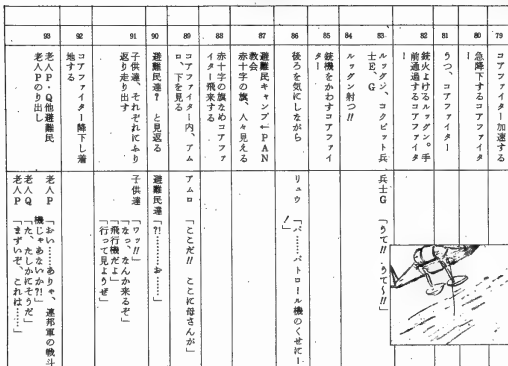 79
コアファイター加速する
80
急降下するコアファイター
81
うつ、コアファイター
82
銃火よけるルッグン。手
前通過するコアファイタ
ー
83
ルッグン、コクピット兵
士E、G
兵士G「うて!!うて〜!!」
84
ルッグン射つ!!
85
銃機をかわすコアファイ
ター
86
後ろを気にしながら
リュウ「パ……パトロール機のくせにー
!」
87
避難民キャンプ←PAN
教会
赤十字の旗、人々見える
88
赤十字の旗なめコアファ
イター飛来する
89
コアファイター内、アム
ロ、下を見る
アムロ「ここだ!!ここに母さんが」
90
避難民達?と見返る
避難民達「?!………お……」
91
子供達、それぞれにふり
返り走り出す
子供達「ワッ!!」
「なっ、なんか来るぞ」
「飛行機だよ」
「行って見ようぜ」
92
コアファイター降下し着
地する
93
老人P・Q他避難民
老人Pのり出し
老人P「おい……ありゃ、連邦軍の戦斗
機じゃあないか?!」
老人Q「た、たしかにそうだ」
老人P「まずいぞ、これは……」